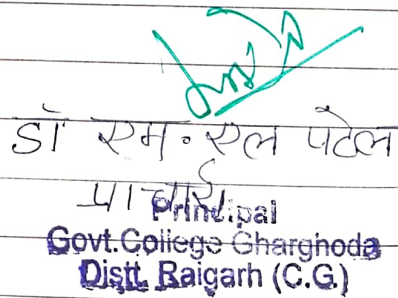 डॉ एम. एल पटेल
प्राचार्य
Principal
Govt. College Gharghoda
Distt. Raigarh (C.G.)